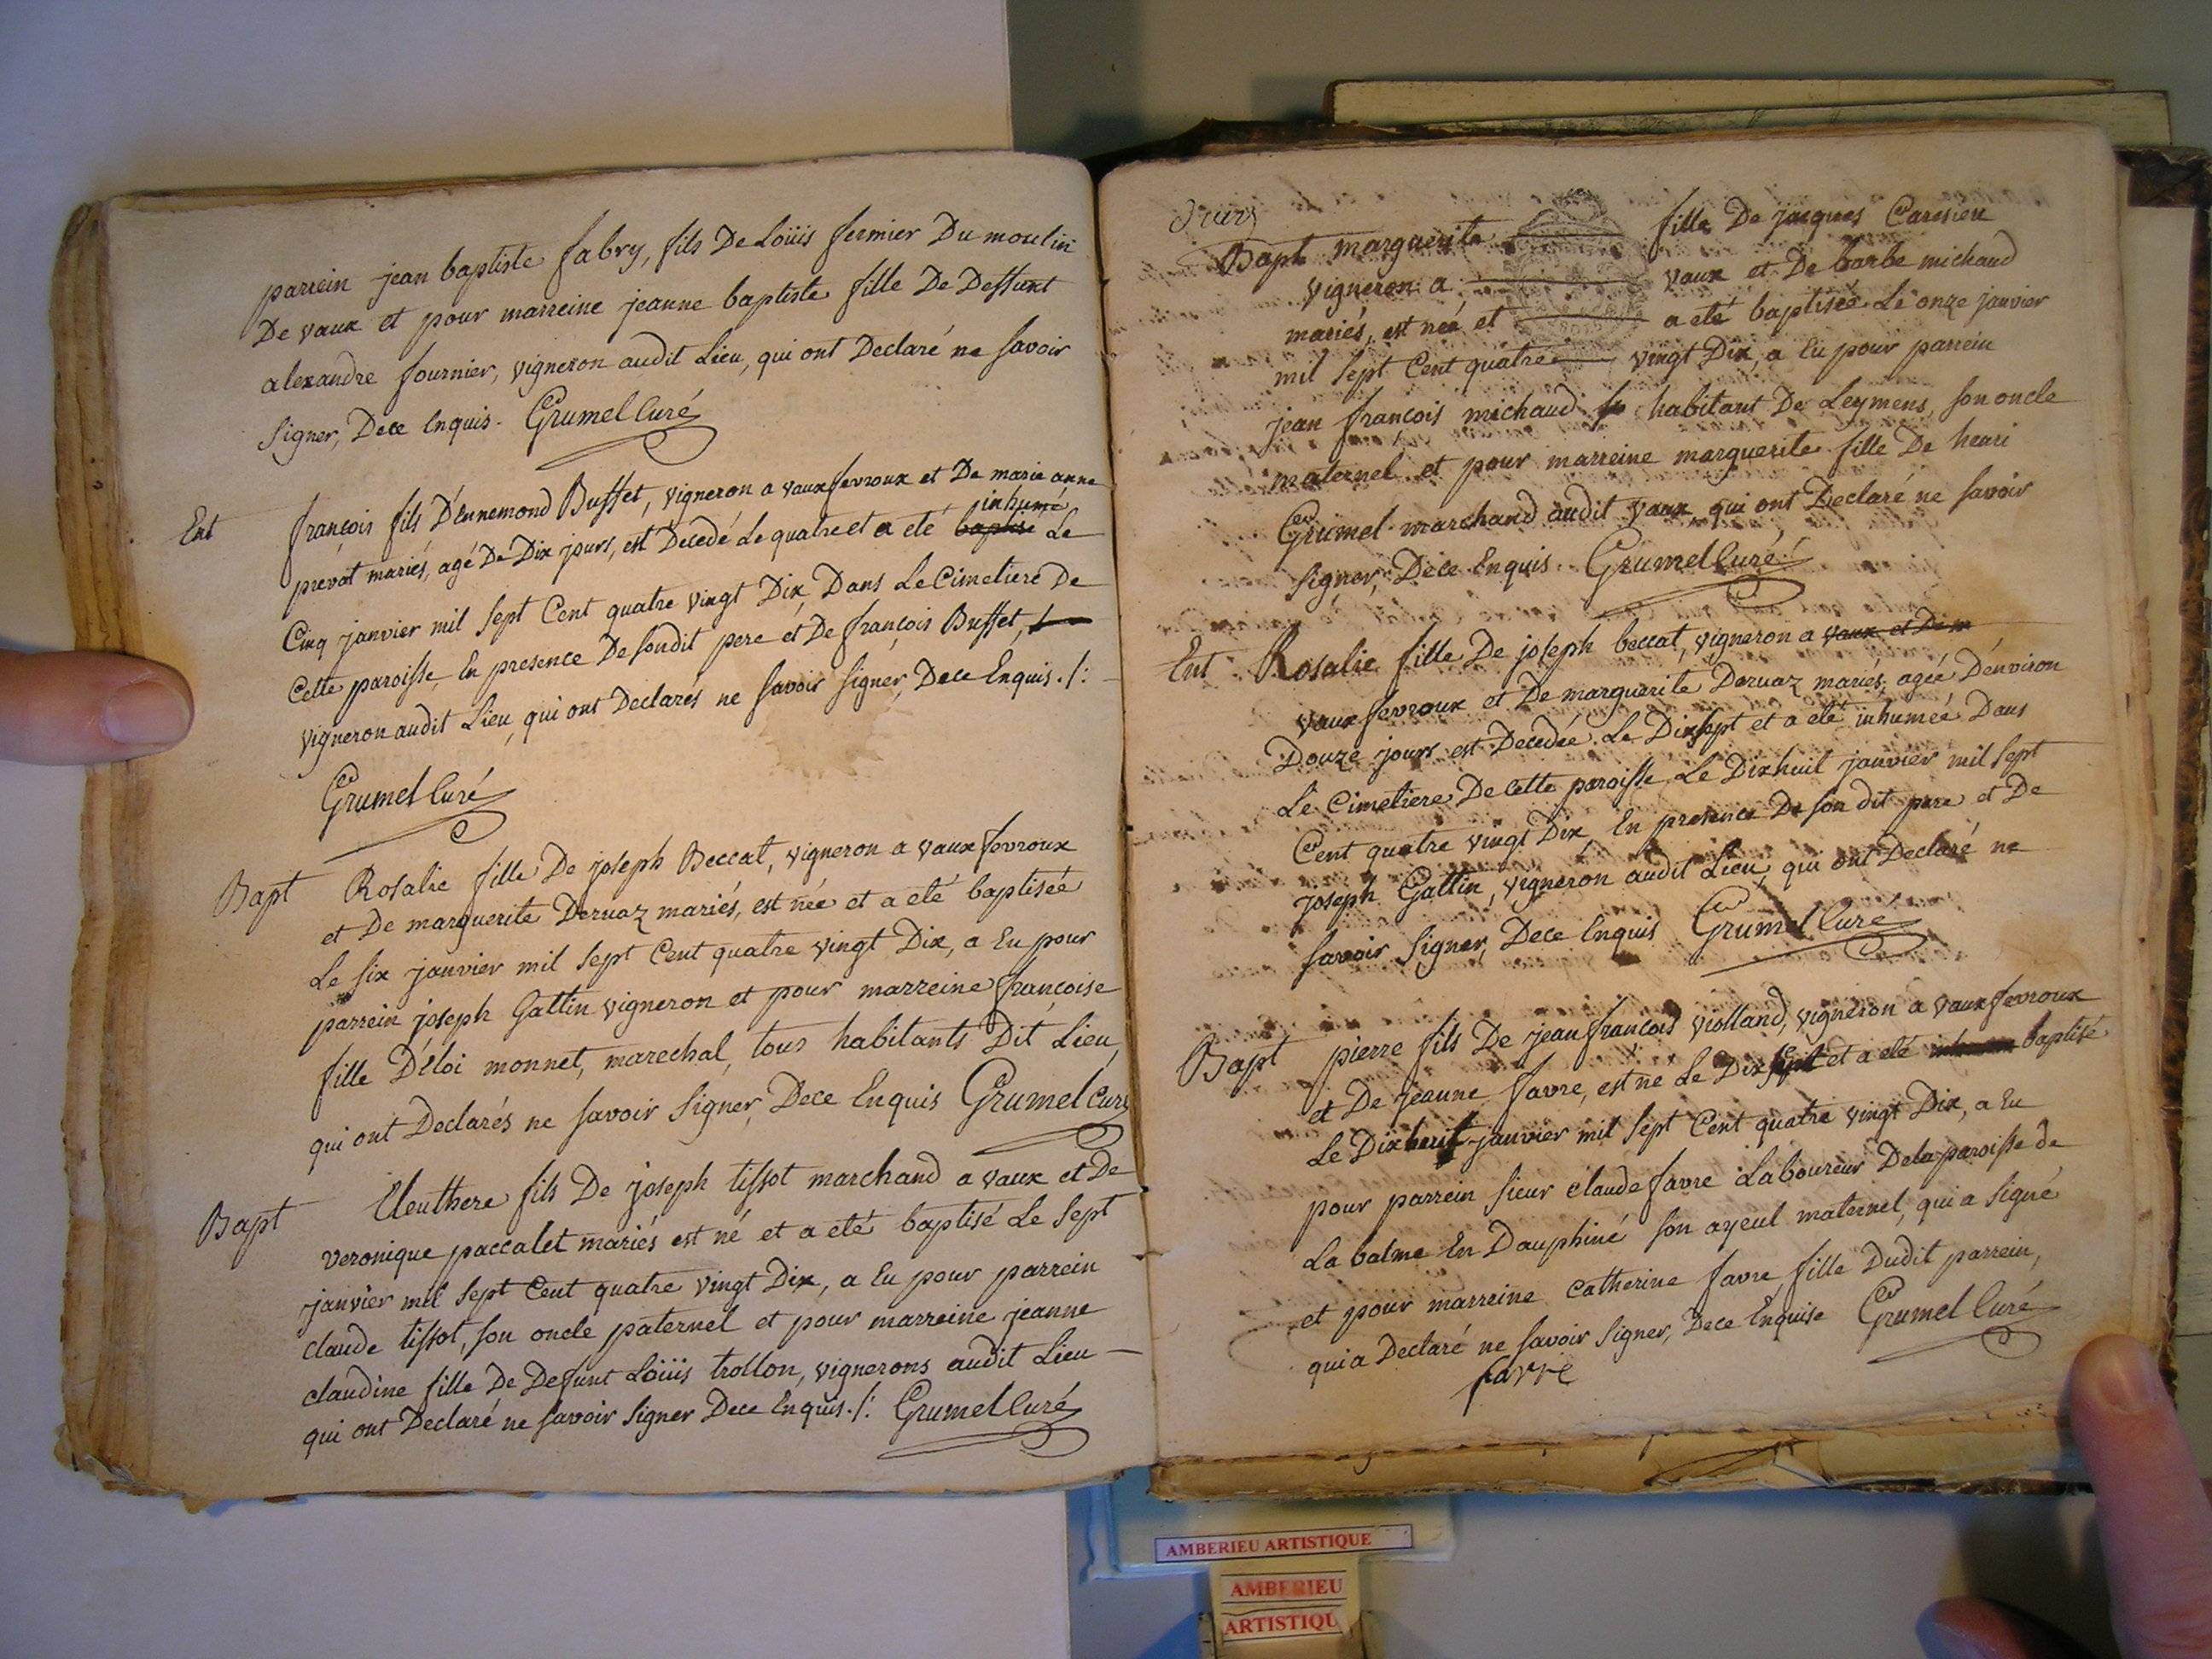 parrein jean baptiste fabry, fils De Loüis fermier Du moulin
De vaux et pour marreine jeanne baptiste fille De Deffunt
alexandre fournier, vigneron audit Lieu, qui ont Declaré ne savoir
signer, Dece Enquis. Grumel Curé
Ent françois fils D'Ennemond Buffet, vigneron a vaux fevroux et De marie anne
prevot mariés, agé De Dix jours, est Decedé Le quatre et a eté baptisé inhumé Le
Cinq janvier mil sept Cent quatre vingt Dix, Dans Le Cimetiere De
Cette paroisse, En presence De sondit pere et De françois Buffet,
vigneron audit Lieu, qui ont Declarés ne savoir signer, Dece Enquis./:
Grumel Curé
Bapt Rosalie fille De joseph Beccat, vigneron a vaux fevroux
et De marguerite Dervaz mariés, est née et a eté baptisée
Le six janvier mil sept Cent quatre vingt Dix, a Eu pour
parrein joseph Gattin vigneron et pour marreine françoise
fille D'Eloi monnet, marechal, tous habitants Dit Lieu,
qui ont Declarés ne savoir signer, Dece Enquis Grumel Curé
Bapt Eleuthere fils De joseph tissot marchand a vaux et De
veronique paccalet mariés est né et a eté baptisé Le sept
janvier mil sept Cent quatre vingt Dix, a Eu pour parrein
claude tissot, son oncle paternel et pour marreine jeanne
claudine fille De Defunt Loüis trollon, vignerons audit Lieu
qui ont Declaré ne savoir signer Dece Enquis./: Grumel Curé
Bapt marguerite fille De jacques Caresieu
vigneron a vaux et De barbe michaud
mariés, est née et a eté baptisée Le onze janvier
mil sept Cent quatre vingt Dix, a Eu pour parrein
jean françois michaud habitant De Leymens, son oncle
maternel et pour marreine marguerite fille De henri
Grumel marchand audit vaux, qui ont Declaré ne savoir
signer, Dece Enquis. Grumel Curé
Ent Rosalie fille De joseph beccat, vigneron a vaux et De m
vaux fevroux et De marguerite Dervaz mariés, agée D'environ
Douze jours est Decedée Le Dixsept et a eté inhumée Dans
Le Cimetiere De Cette paroisse Le Dixhuit janvier mil sept
Cent quatre vingt Dix, En presence De son dit pere et De
joseph Gattin, vigneron audit Lieu, qui ont Declaré ne
savoir signer, Dece Enquis Grumel Curé
Bapt pierre fils De jean françois violland, vigneron a vaux fevroux
et De jeanne favre, est né Le Dixsept et a eté baptisé
Le Dixhuit janvier mil sept Cent quatre vingt Dix, a Eu
pour parrein sieur claude favre Laboureur De la paroisse de
La balme En Dauphiné son ayeul maternel, qui a signé
et pour marreine catherine favre fille Dudit parrein,
qui a Declaré ne savoir signer, Dece Enquise Grumel Curé
favre
AMBERIEU ARTISTIQUE
AMBERIEU
ARTISTIQU